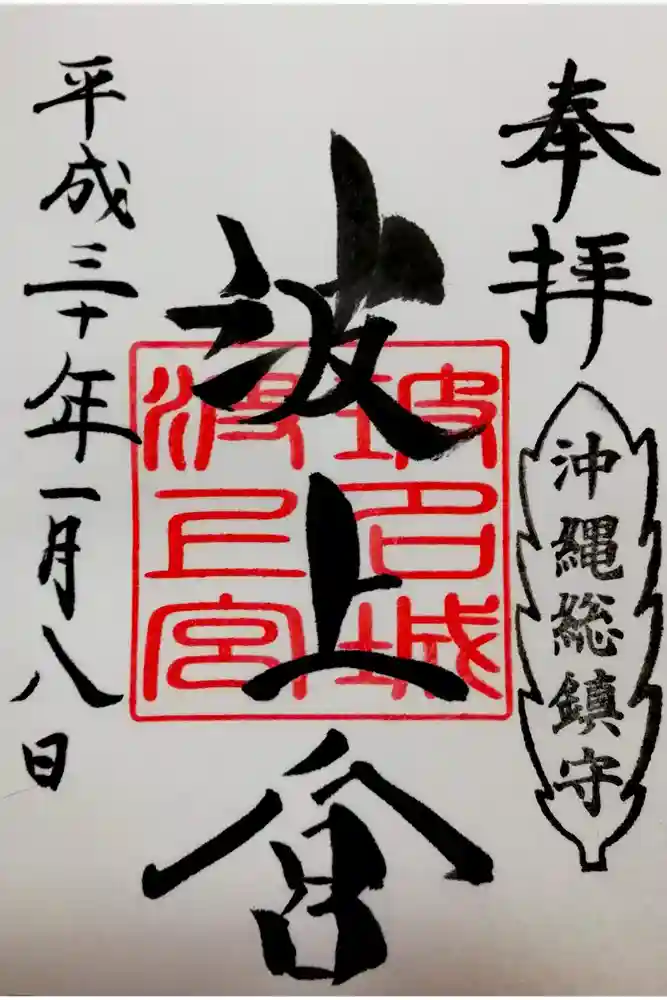 奉拝
沖縄総鎮守
波上宮
坡名城
波上宮
平成三十年一月八日